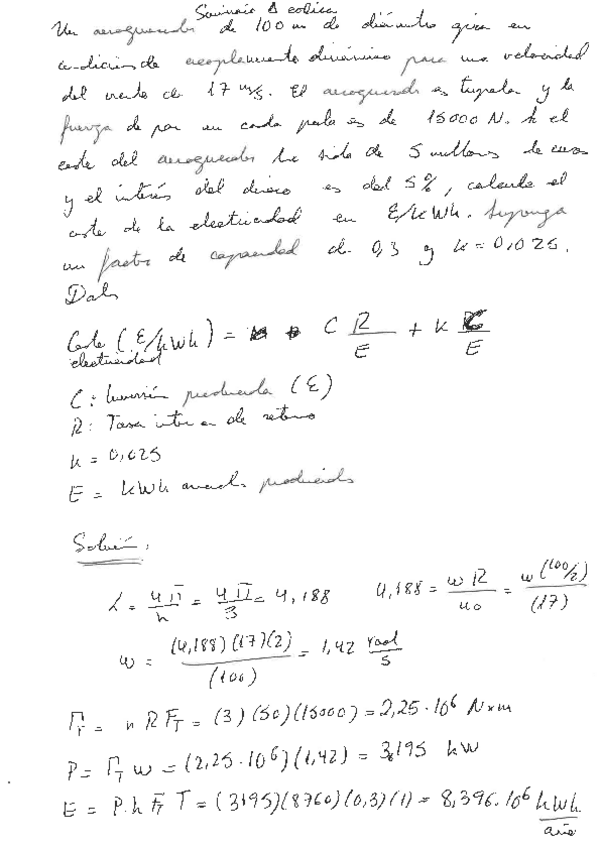 Seminario 1 eolica
Un aerogenerador de 100 m de diámetro gira en
condición de acoplamiento dinámico para una velocidad
del viento de 17 m/s. El aerogenerador es tripala y la
fuerza de par en cada pala es de 15000 N. Si el
coste del aerogenerador ha sido de 5 millones de euros
y el interés del dinero es del 5%, calcule el
coste de la electricidad en €/kWh. Suponga
un factor de capacidad de 0,3 y k=0,025.
Dato
Coste (€/kWh) = C R/E + k C/E
electricidad
C: Inversión producida (€)
R: Tasa interna de retorno
k = 0,025
E = kWh anuales producidos
Solución:
λ = 4π/n = 4π/3 = 4,188 4,188 = w R/u0 = w(100/2)/(17)
w = (4,188)(17)(2)/(100) = 1,42 rad/s
Γ_T = n R F_T = (3)(50)(15000) = 2,25·10^6 N×m
P = Γ_T w = (2,25·10^6)(1,42) = 3195 kW
E = P·h F_T T = (3195)(8760)(0,3)(1) = 8,396·10^6 kWh/año